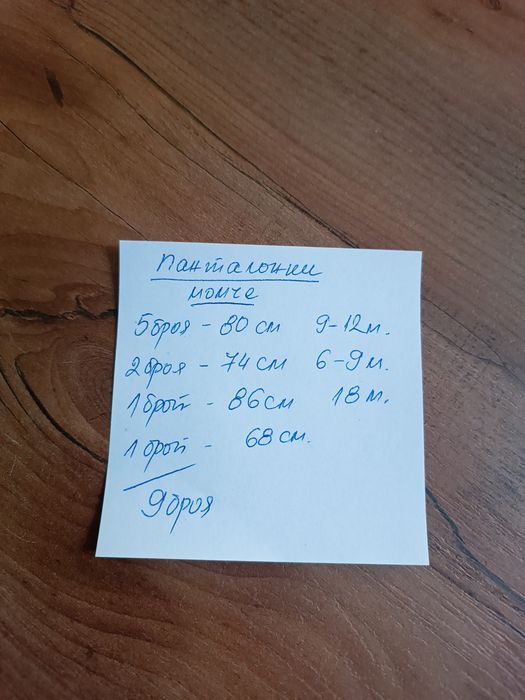 Панталонки
момче
5 броя - 80 см 9-12 м.
2 броя - 74 см 6-9 м.
1 брой - 86 см 18 м.
1 брой - 68 см.
9 броя